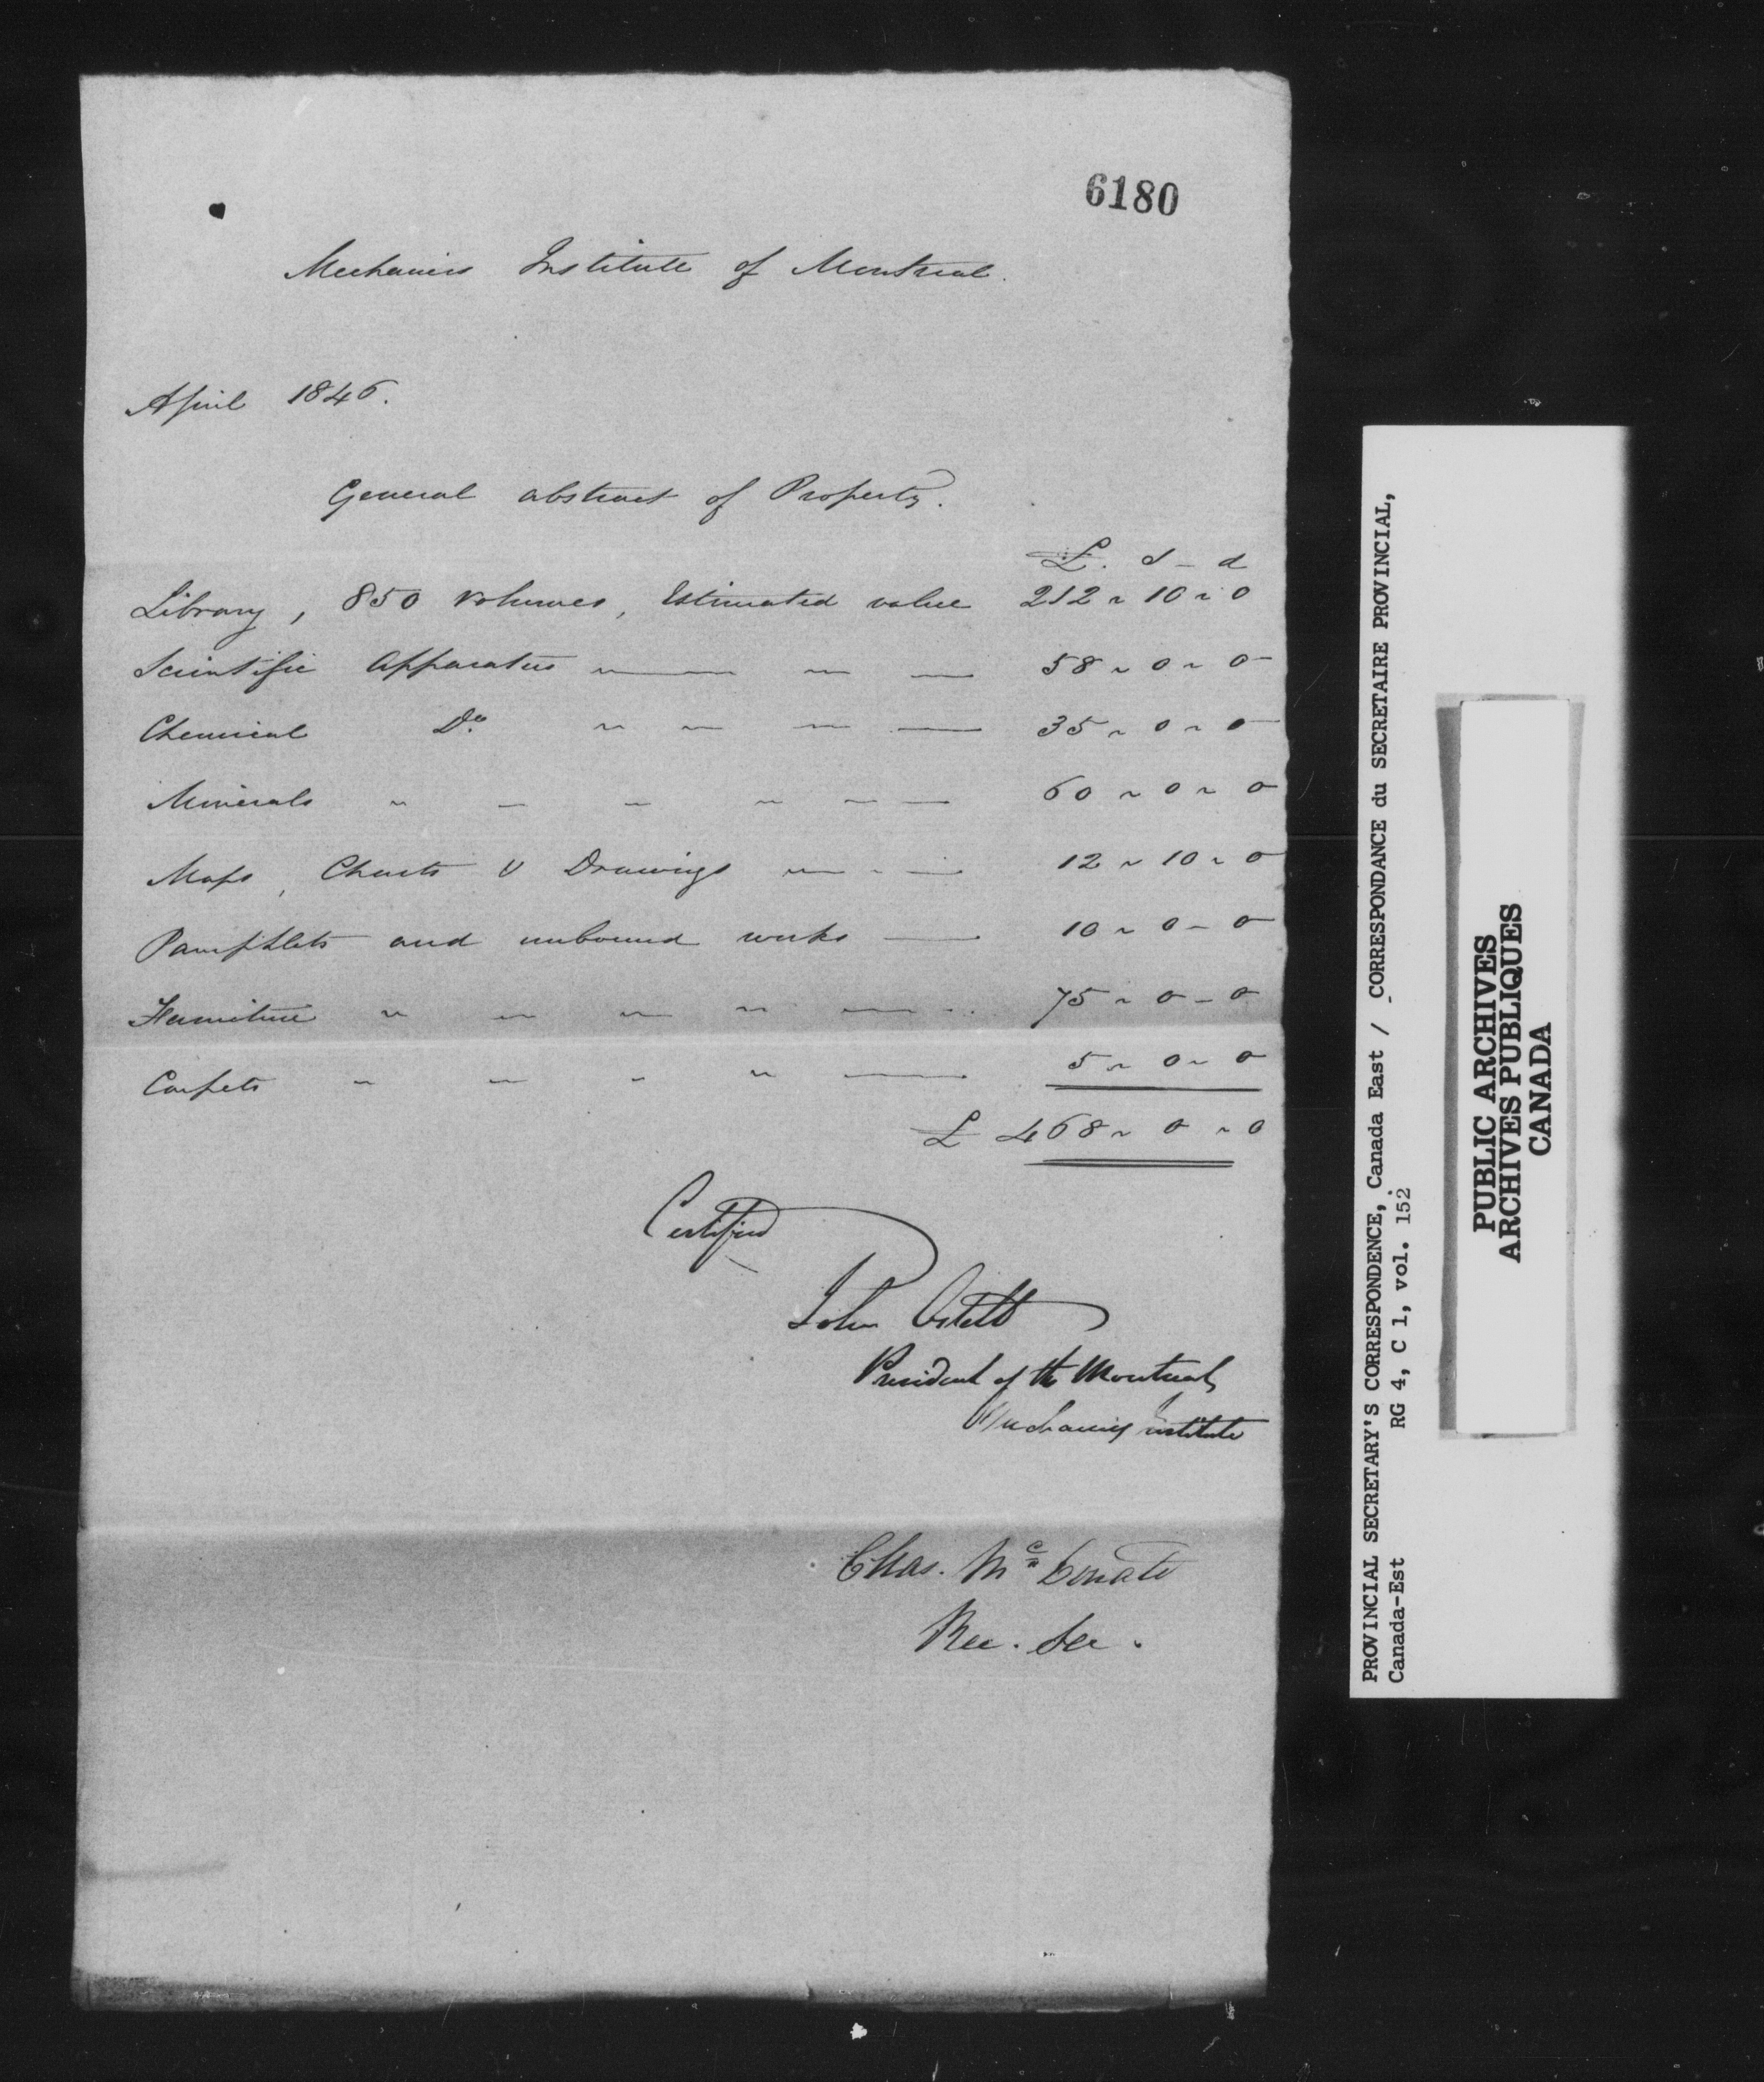 6180
Mechanics Institute of Montreal.
April 1846.
General abstract of Property.
£. s - d
Library, 850 volumes, Estimated value 212 ~ 10 ~ 0
Scientific Apparatus ~ — ~ — 58 ~ 0 ~ 0
Chemical Do. ~ ~ ~ — 35 ~ 0 ~ 0
Minerals ~ — ~ ~ ~ — 60 ~ 0 ~ 0
Maps, Charts & Drawings ~ - — 12 ~ 10 ~ 0
Pamphlets and unbound works — 10 ~ 0 - 0
Furniture ~ ~ ~ ~ — 75 ~ 0 - 0
Carpets ~ ~ - ~ — 5 ~ 0 ~ 0
£ 468 ~ 0 ~ 0
Certified
John Ostell
President of the Montreal
Mechanics institute
Chas. Mc
Rec. Sec.
PROVINCIAL SECRETARY'S CORRESPONDENCE, Canada East / CORRESPONDANCE du SECRETAIRE PROVINCIAL,
Canada-Est RG 4, C 1, vol. 152
PUBLIC ARCHIVES
ARCHIVES PUBLIQUES
CANADA